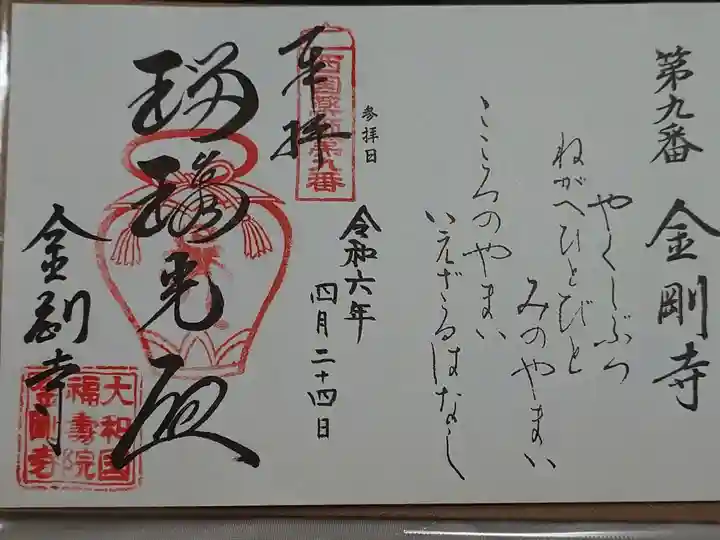 第九番 金剛寺
やくしぶつ
ねがへひとびと
みのやまい
こころのやまい
いえざるはなし
参拝日
令和六年
四月二十四日
奉拝
西国薬師第九番
瑠璃光殿
金剛寺
大和国
福寿院
金剛寺